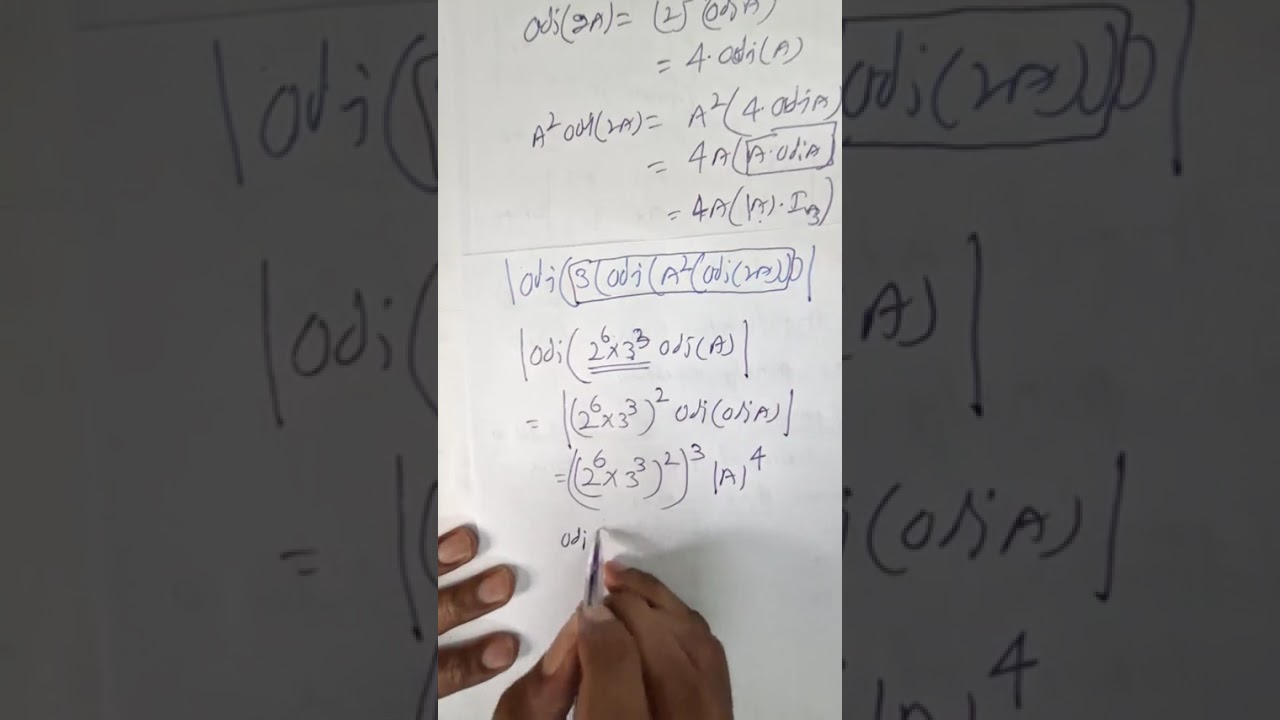 adj(2A) = (2)² (adj A)
= 4·adj(A)
A² adj(2A) = A²(4·adj A)
= 4A(A·adj A)
= 4A(|A|·I₃)
|adj(3(adj(A²(adj(2A))))|
|adj(2⁶×3³ adj(A)|
= |(2⁶×3³)² adj(adj A)|
= ((2⁶×3³)²)³ |A|⁴
adj